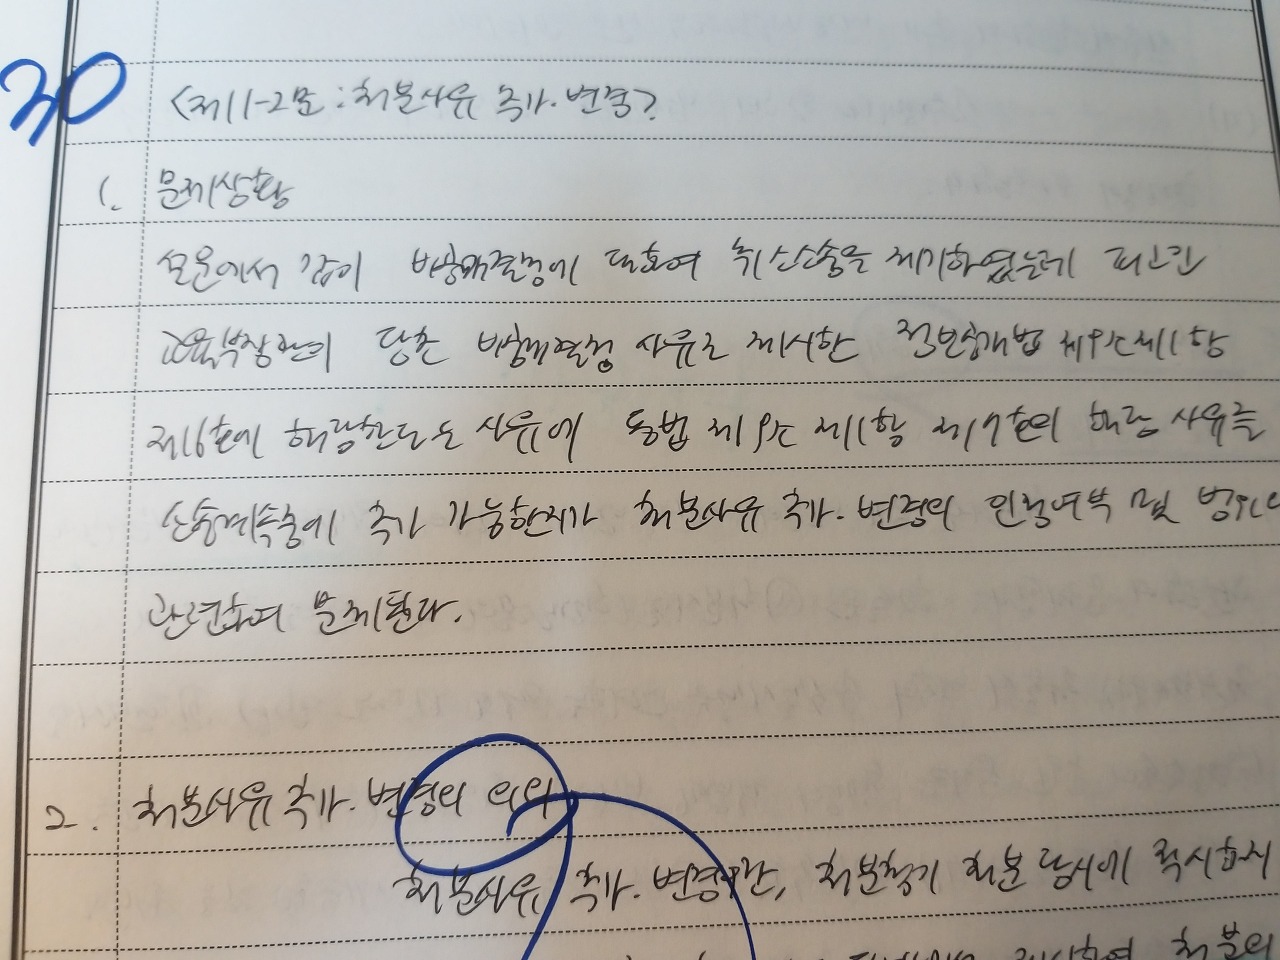 30
<제11-2문 : 처분사유 추가·변경>
1. 문제상황
설문에서 갑이 비공개결정에 대하여 취소소송을 제기하였는데 피고인
교육부장관이 당초 비공개결정 사유로 제시한 정보공개법 제9조제1항
제6호에 해당한다는 사유에 동법 제9조 제1항 제7호의 해당 사유를
소송계속중에 추가 가능한지가 처분사유 추가·변경의 인정여부 및 범위
관련하여 문제된다.
2. 처분사유 추가·변경의 의의
처분사유 추가·변경이란, 처분청이 처분 당시에 적시하지
처분의